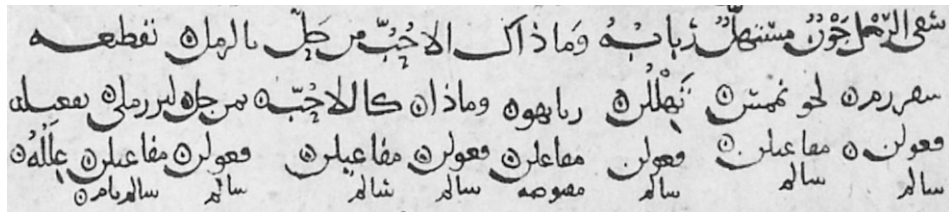 سقى الرّمل جَوْنٌ مستهلٌّ رَبابُهُ وَما ذاك الا حُبُّ من حلّ بالرمل تقطيعه
سقررم لجونمسن تَهْللن ربابهو وماذا كالاحُبّ بمن حل لبررملي تفعيله
فعولن مفاعيلن فعولن مفاعلن فعولن مفاعيلن فعولن مفاعيلن عِلَلُهُ
سالم سالم سالم مقبوضه سالم سالم سالم سالم تام